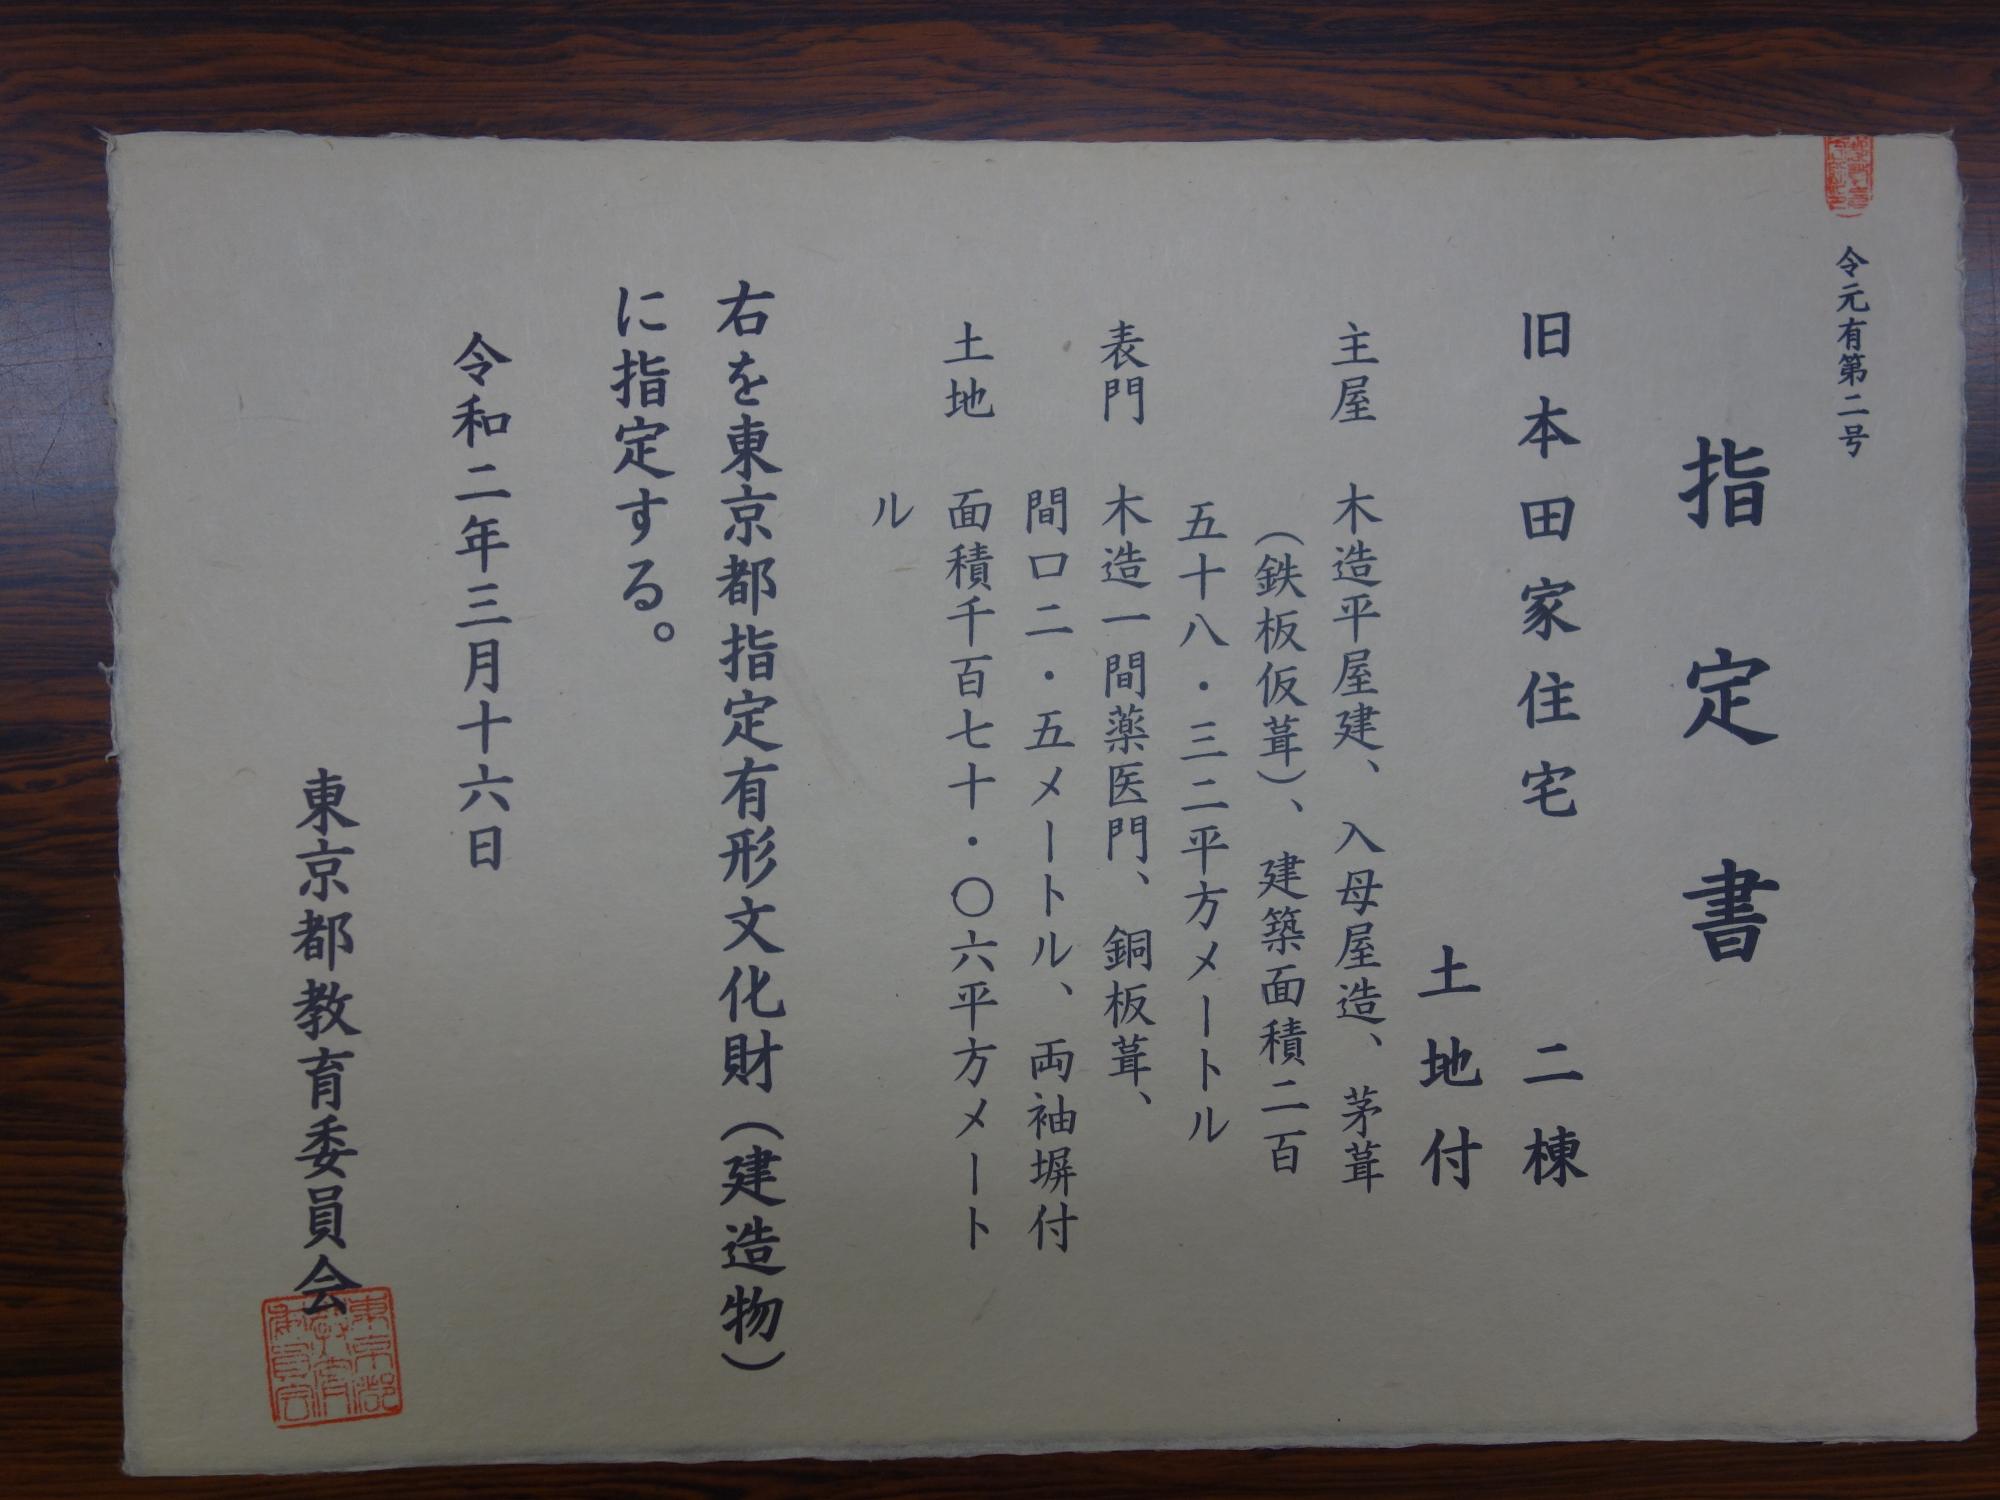 令元有第二号
指定書
旧本田家住宅　二棟
土地付
主屋　木造平屋建、入母屋造、茅葺
（鉄板仮葺）、建築面積二百
五十八・三二平方メートル
表門　木造一間薬医門、銅板葺、
間口二・五メートル、両袖塀付
土地　面積千百七十・〇六平方メート
ル
右を東京都指定有形文化財（建造物）
に指定する。
令和二年三月十六日
東京都教育委員会
東京都
教育
委員会